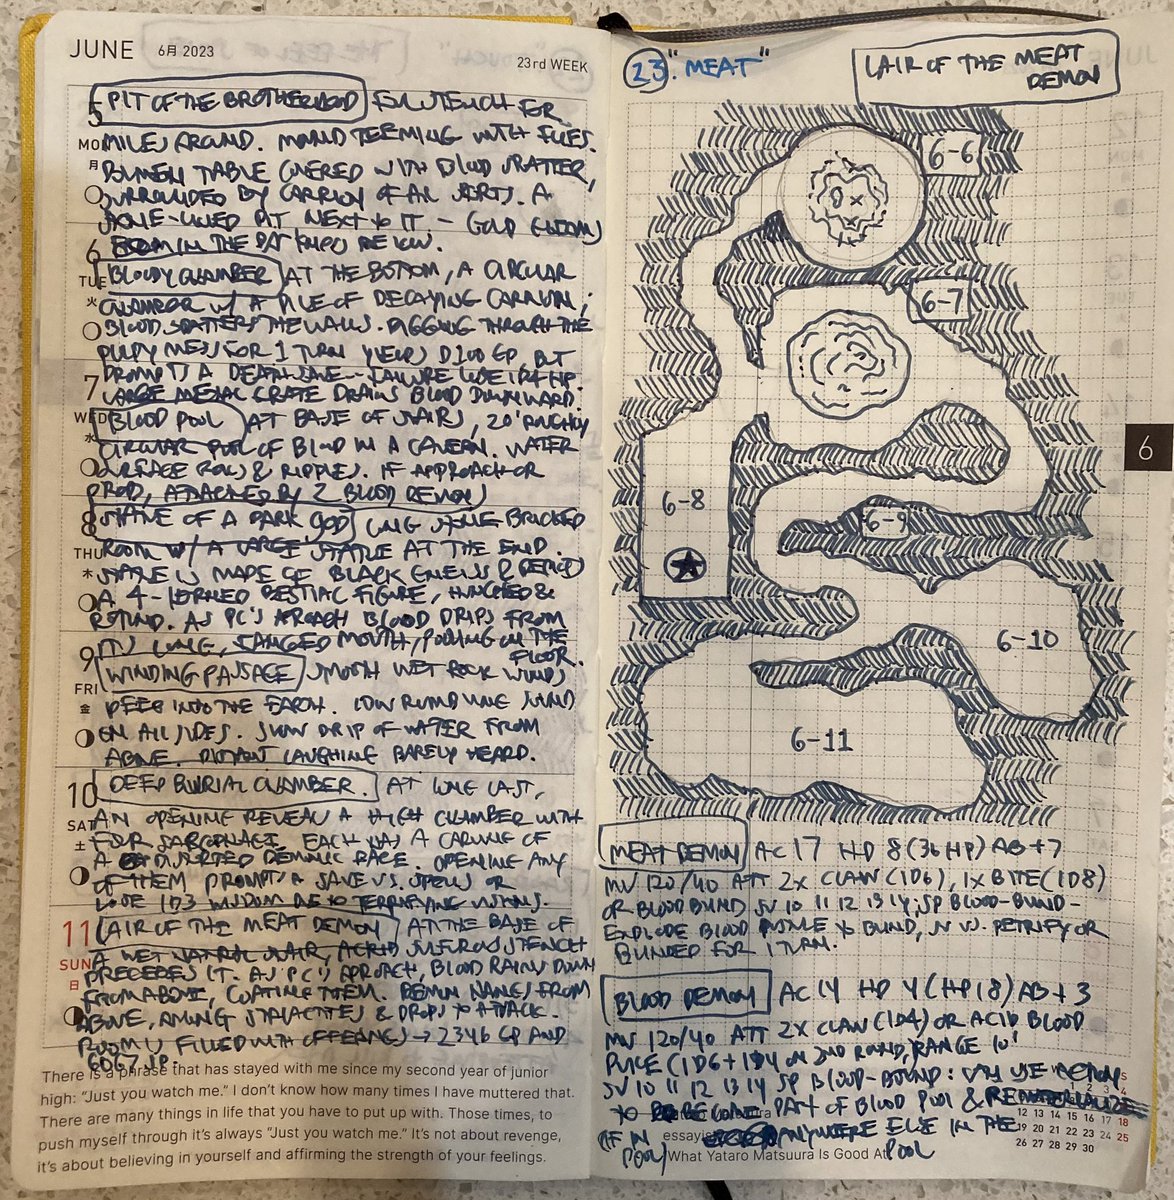 JUNE 6月 2023 23rd WEEK
5 MO 月
PIT OF THE BROTHERHOOD FOUL STENCH FOR
MILES AROUND. MOUND TEEMING WITH FLIES.
TABLE COVERED WITH BLOOD SPATTER,
SURROUNDED BY CARRION OF ALL SORTS. A
BONE-LINED PIT NEXT TO IT - GOLD
IN THE PIT BELOW.
6 TUE 火
BLOODY CHAMBER AT THE BOTTOM, A CIRCULAR
CHAMBER W/ A PILE OF DECAYING CARRION;
BLOOD SPATTERS THE WALLS. DIGGING THROUGH THE
PULPY MESS FOR 1 TURN YIELDS D100 GP, BUT
PROMPTS A DEATH SAVE - FAILURE LOSE 1D4 HP.
LARGE METAL GRATE DRAINS BLOOD DOWNWARD.
7 WED 水
BLOOD POOL AT BASE OF STAIRS, 20' ROUGHLY
CIRCULAR POOL OF BLOOD IN A CAVERN. WATER
SURFACE ROILS & RIPPLES. IF APPROACH OR
PROD, ATTACKED BY 2 BLOOD DEMONS
8 THU 木
STATUE OF A DARK GOD LONG STONE BRICKED
ROOM W/ A LARGE STATUE AT THE END.
STATUE IS MADE OF BLACK GNEISS & DEPICTS
A 4-HORNED BESTIAL FIGURE, HUNCHED &
ROTUND. AS PC'S APROACH BLOOD DRIPS FROM
ITS LONG, FANGED MOUTH, POOLING ON THE
FLOOR.
9 FRI 金
WINDING PASSAGE SMOOTH WET ROCK WINDS
DEEP INTO THE EARTH. LOW RUMBLING SOUND
ON ALL SIDES. SLOW DRIP OF WATER FROM
ABOVE. DISTANT LAUGHING BARELY HEARD.
10 SAT 土
DEEP BURIAL CHAMBER. AT LONG LAST,
AN OPENING REVEALS A HIGH CHAMBER WITH
FOUR SARCOPHAGI. EACH HAS A CARVING OF
A DISTORTED DEMONIC FACE. OPENING ANY
OF THEM PROMPTS A SAVE VS. SPELLS OR
LOSE 1D3 WISDOM DUE TO TERRIFYING VISIONS.
11 SUN 日
LAIR OF THE MEAT DEMON AT THE BASE OF
A WET NATURAL STAIR, ACRID SULFUROUS STENCH
PRECEDES IT. AS PC'S APROACH, BLOOD RAINS DOWN
FROM ABOVE, COATING THEM. DEMON HANGS FROM
ABOVE, AMONG STALACTITES & DROPS TO ATTACK.
ROOM IS FILLED WITH OFFERINGS → 2346 GP AND
6067 SP.
There is a phrase that has stayed with me since my second year of junior
high: "Just you watch me." I don't know how many times I have muttered that.
There are many things in life that you have to put up with. Those times, to
push myself through it's always "Just you watch me." It's not about revenge,
it's about believing in yourself and affirming the strength of your feelings.
23. "MEAT"
LAIR OF THE MEAT
DEMON
6-6
6-7
6-8
6-9
6-10
6-11
6
MEAT DEMON AC 17 HD 8 (36 HP) AB +7
MV 120/40 ATT 2X CLAW (1D6), 1X BITE (1D8)
OR BLOOD BLIND SV 10 11 12 13 14; SP BLOOD-BLIND-
EXPLODE BLOOD PUSTULE TO BLIND, SV VS. PETRIFY OR
BLINDED FOR 1 TURN.
BLOOD DEMON AC 14 HD 4 (HP 18) AB +3
MV 120/40 ATT 2X CLAW (1D4) OR ACID BLOOD
PUKE (1D6 + 1D4 ON 2ND ROUND, RANGE 10'
SV 10 11 12 13 14 SP BLOOD-BOUND: MAY USE ACTION
TO BECOME PART OF BLOOD POOL & REMATERIALIZE
(IF IN POOL) ANYWHERE ELSE IN THE
POOL
12 13 14 15 16 17 18
19 20 21 22 23 24 25
26 27 28 29 30
What Yataro Matsuura Is Good At